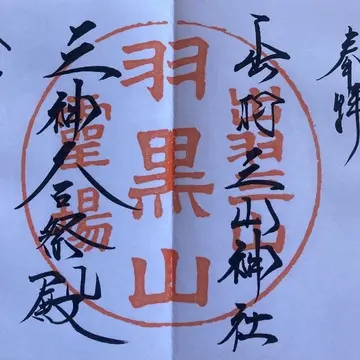 奉拝
出羽三山神社
三神合祭殿
羽黒山
靈場